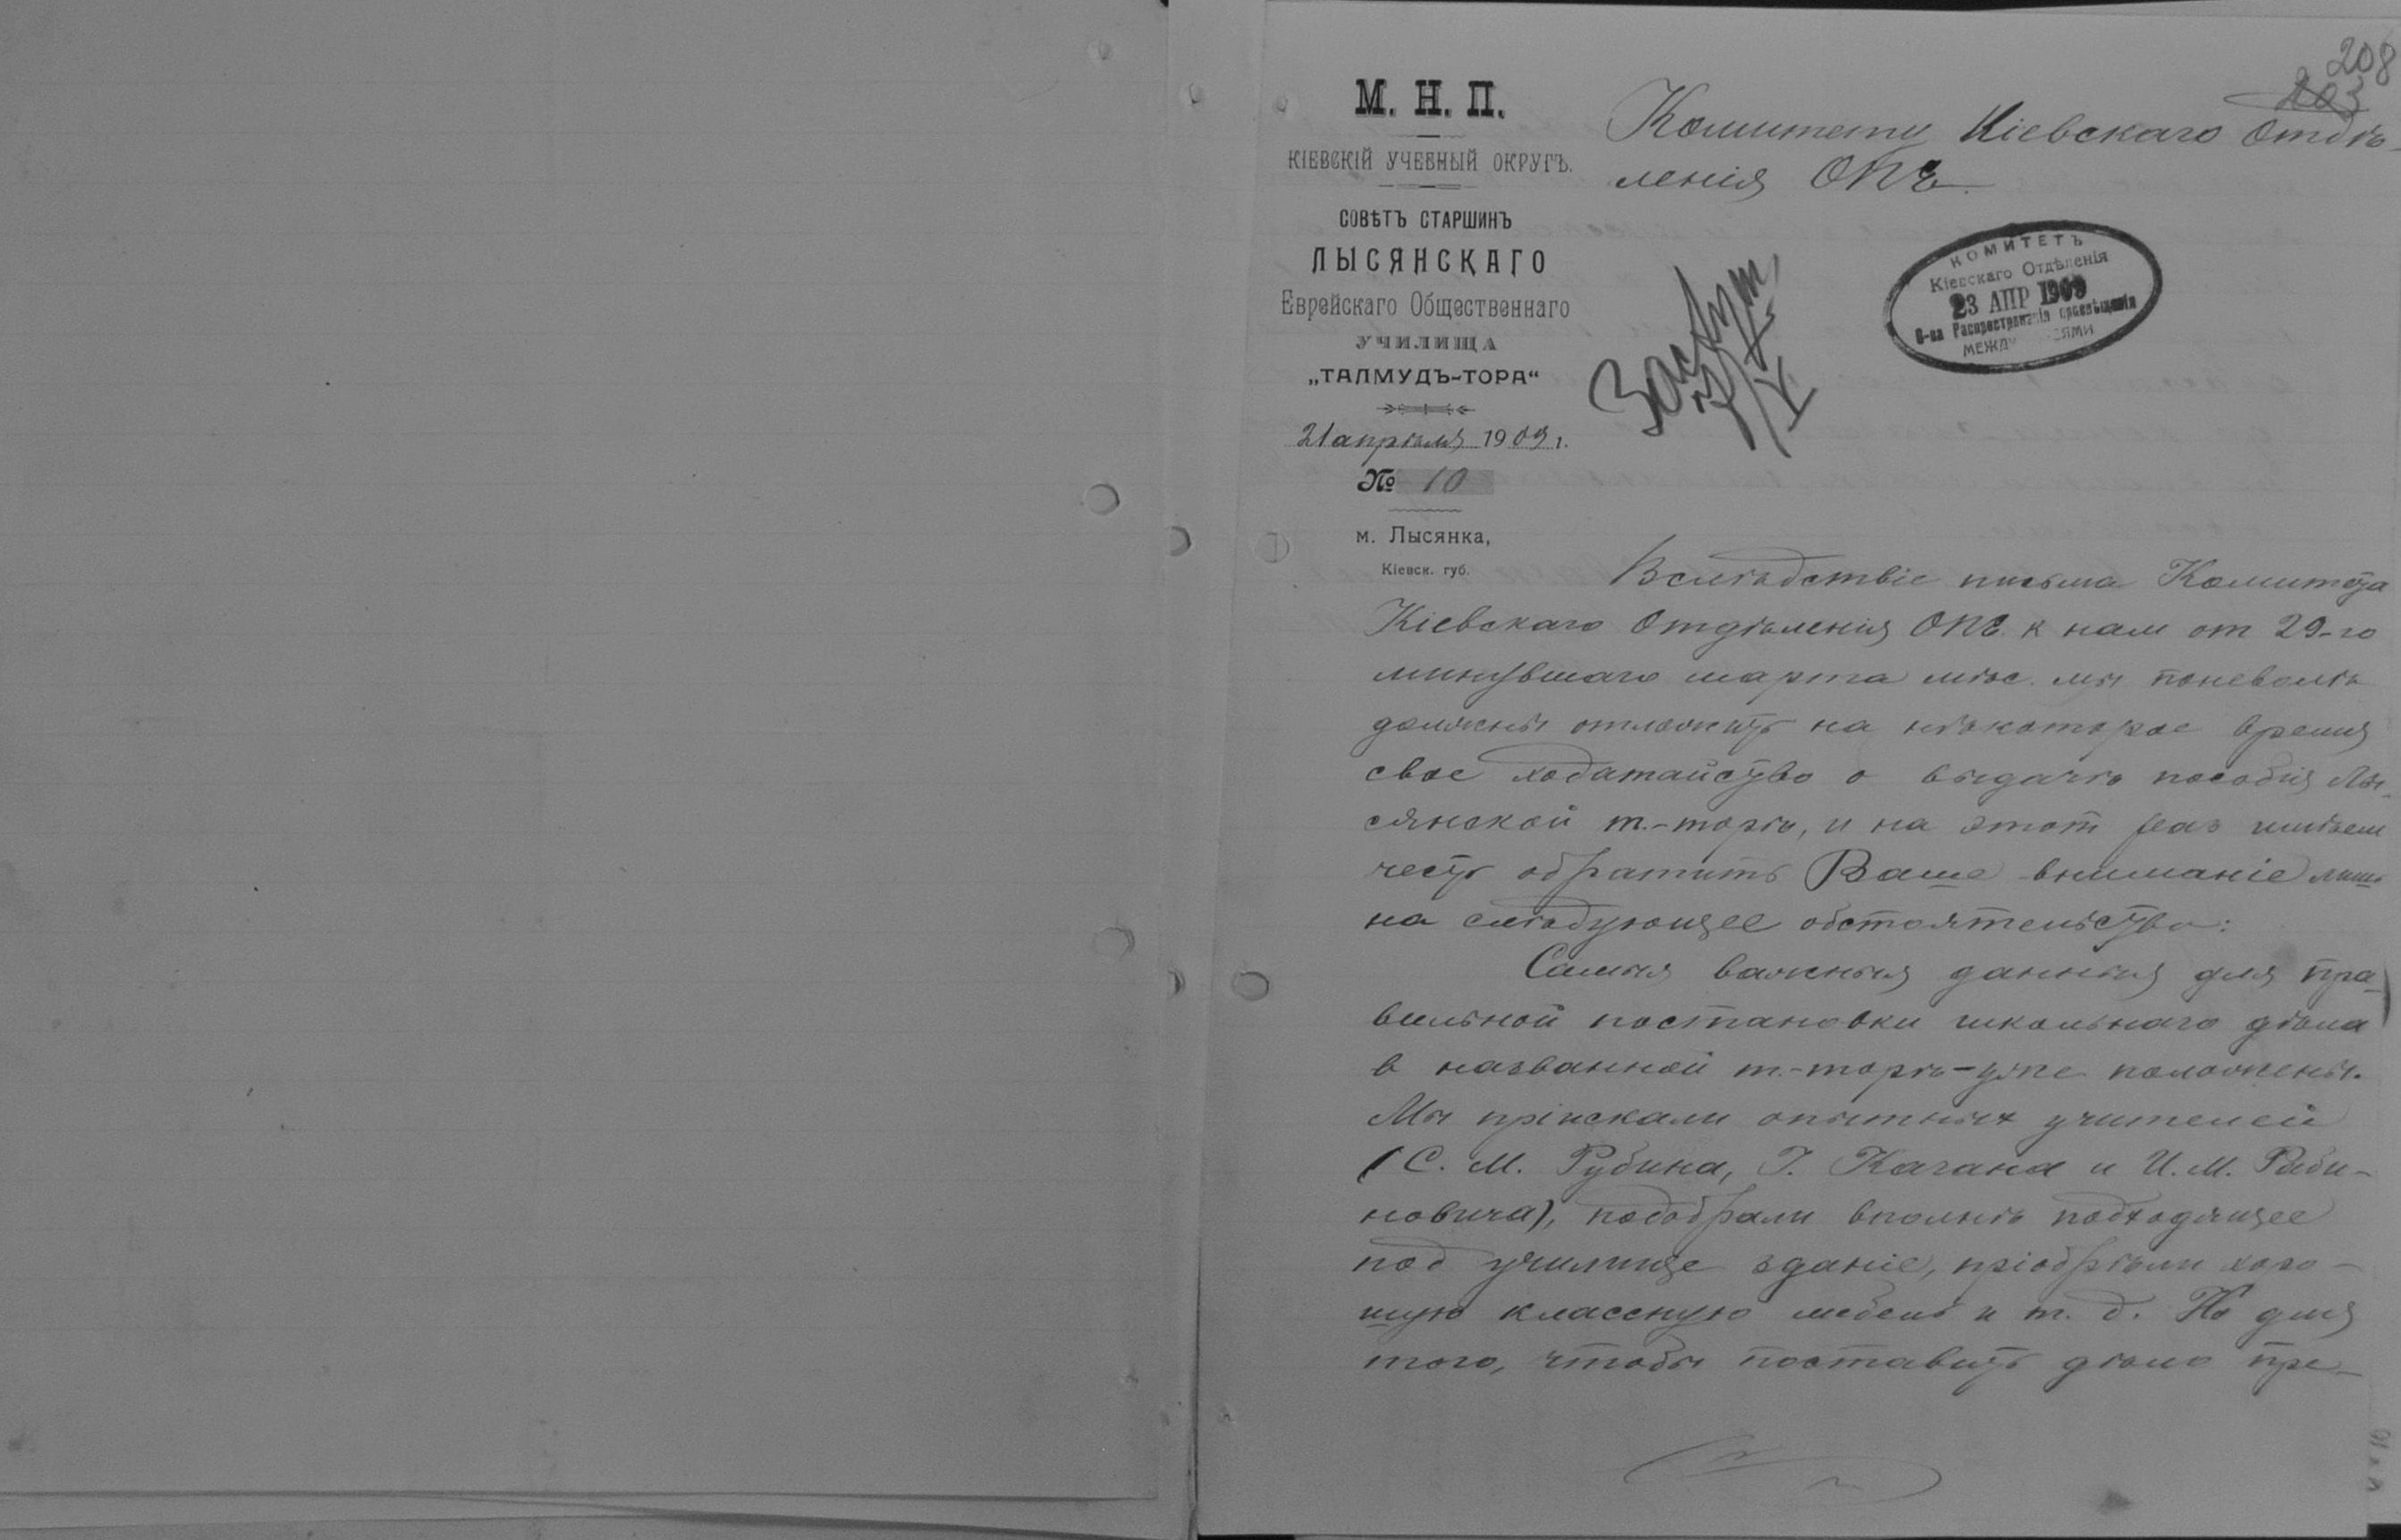 208
203
М. Н. П.
КІЕВСКІЙ УЧЕБНЫЙ ОКРУГЪ.
СОВѢТЪ СТАРШИНЪ
ЛЫСЯНСКАГО
Еврейскаго Общественнаго
УЧИЛИЩА
„ТАЛМУДЪ-ТОРА“
21 апрѣля 1909 г.
№ 10
м. Лысянка,
Кіевск. губ.
Комитету Кіевскаго Отдѣ-
ленія ОПЕ.
КОМИТЕТЪ
Кіевскаго Отдѣленія
23 АПР 1909
О-ва Распространенія просвѣщенія
МЕЖДУ ЕВРЕЯМИ
Вслѣдствіе письма Комитета
Кіевскаго Отдѣленія ОПЕ. к нам от 29-го
минувшаго марта мѣс. мы поневолѣ
должны отложить на нѣкоторое время
свое ходатайство о выдачѣ пособія Лы-
сянской т.-торѣ, и на этот раз имѣем
честь обратить Ваше вниманіе лишь
на слѣдующее обстоятельство:
Самыя важныя данныя для пра-
вильной постановки школьнаго дѣла
в названной т.-торѣ - уже положены.
Мы пріискали опытных учителей
(С. М. Рубина, Г. Кагана и И. М. Раби-
новича), подобрали вполнѣ подходящее
под училище зданіе, пріобрѣли хоро-
шую классную мебель и т. д. Но для
того, чтобы поставить дѣло пре-